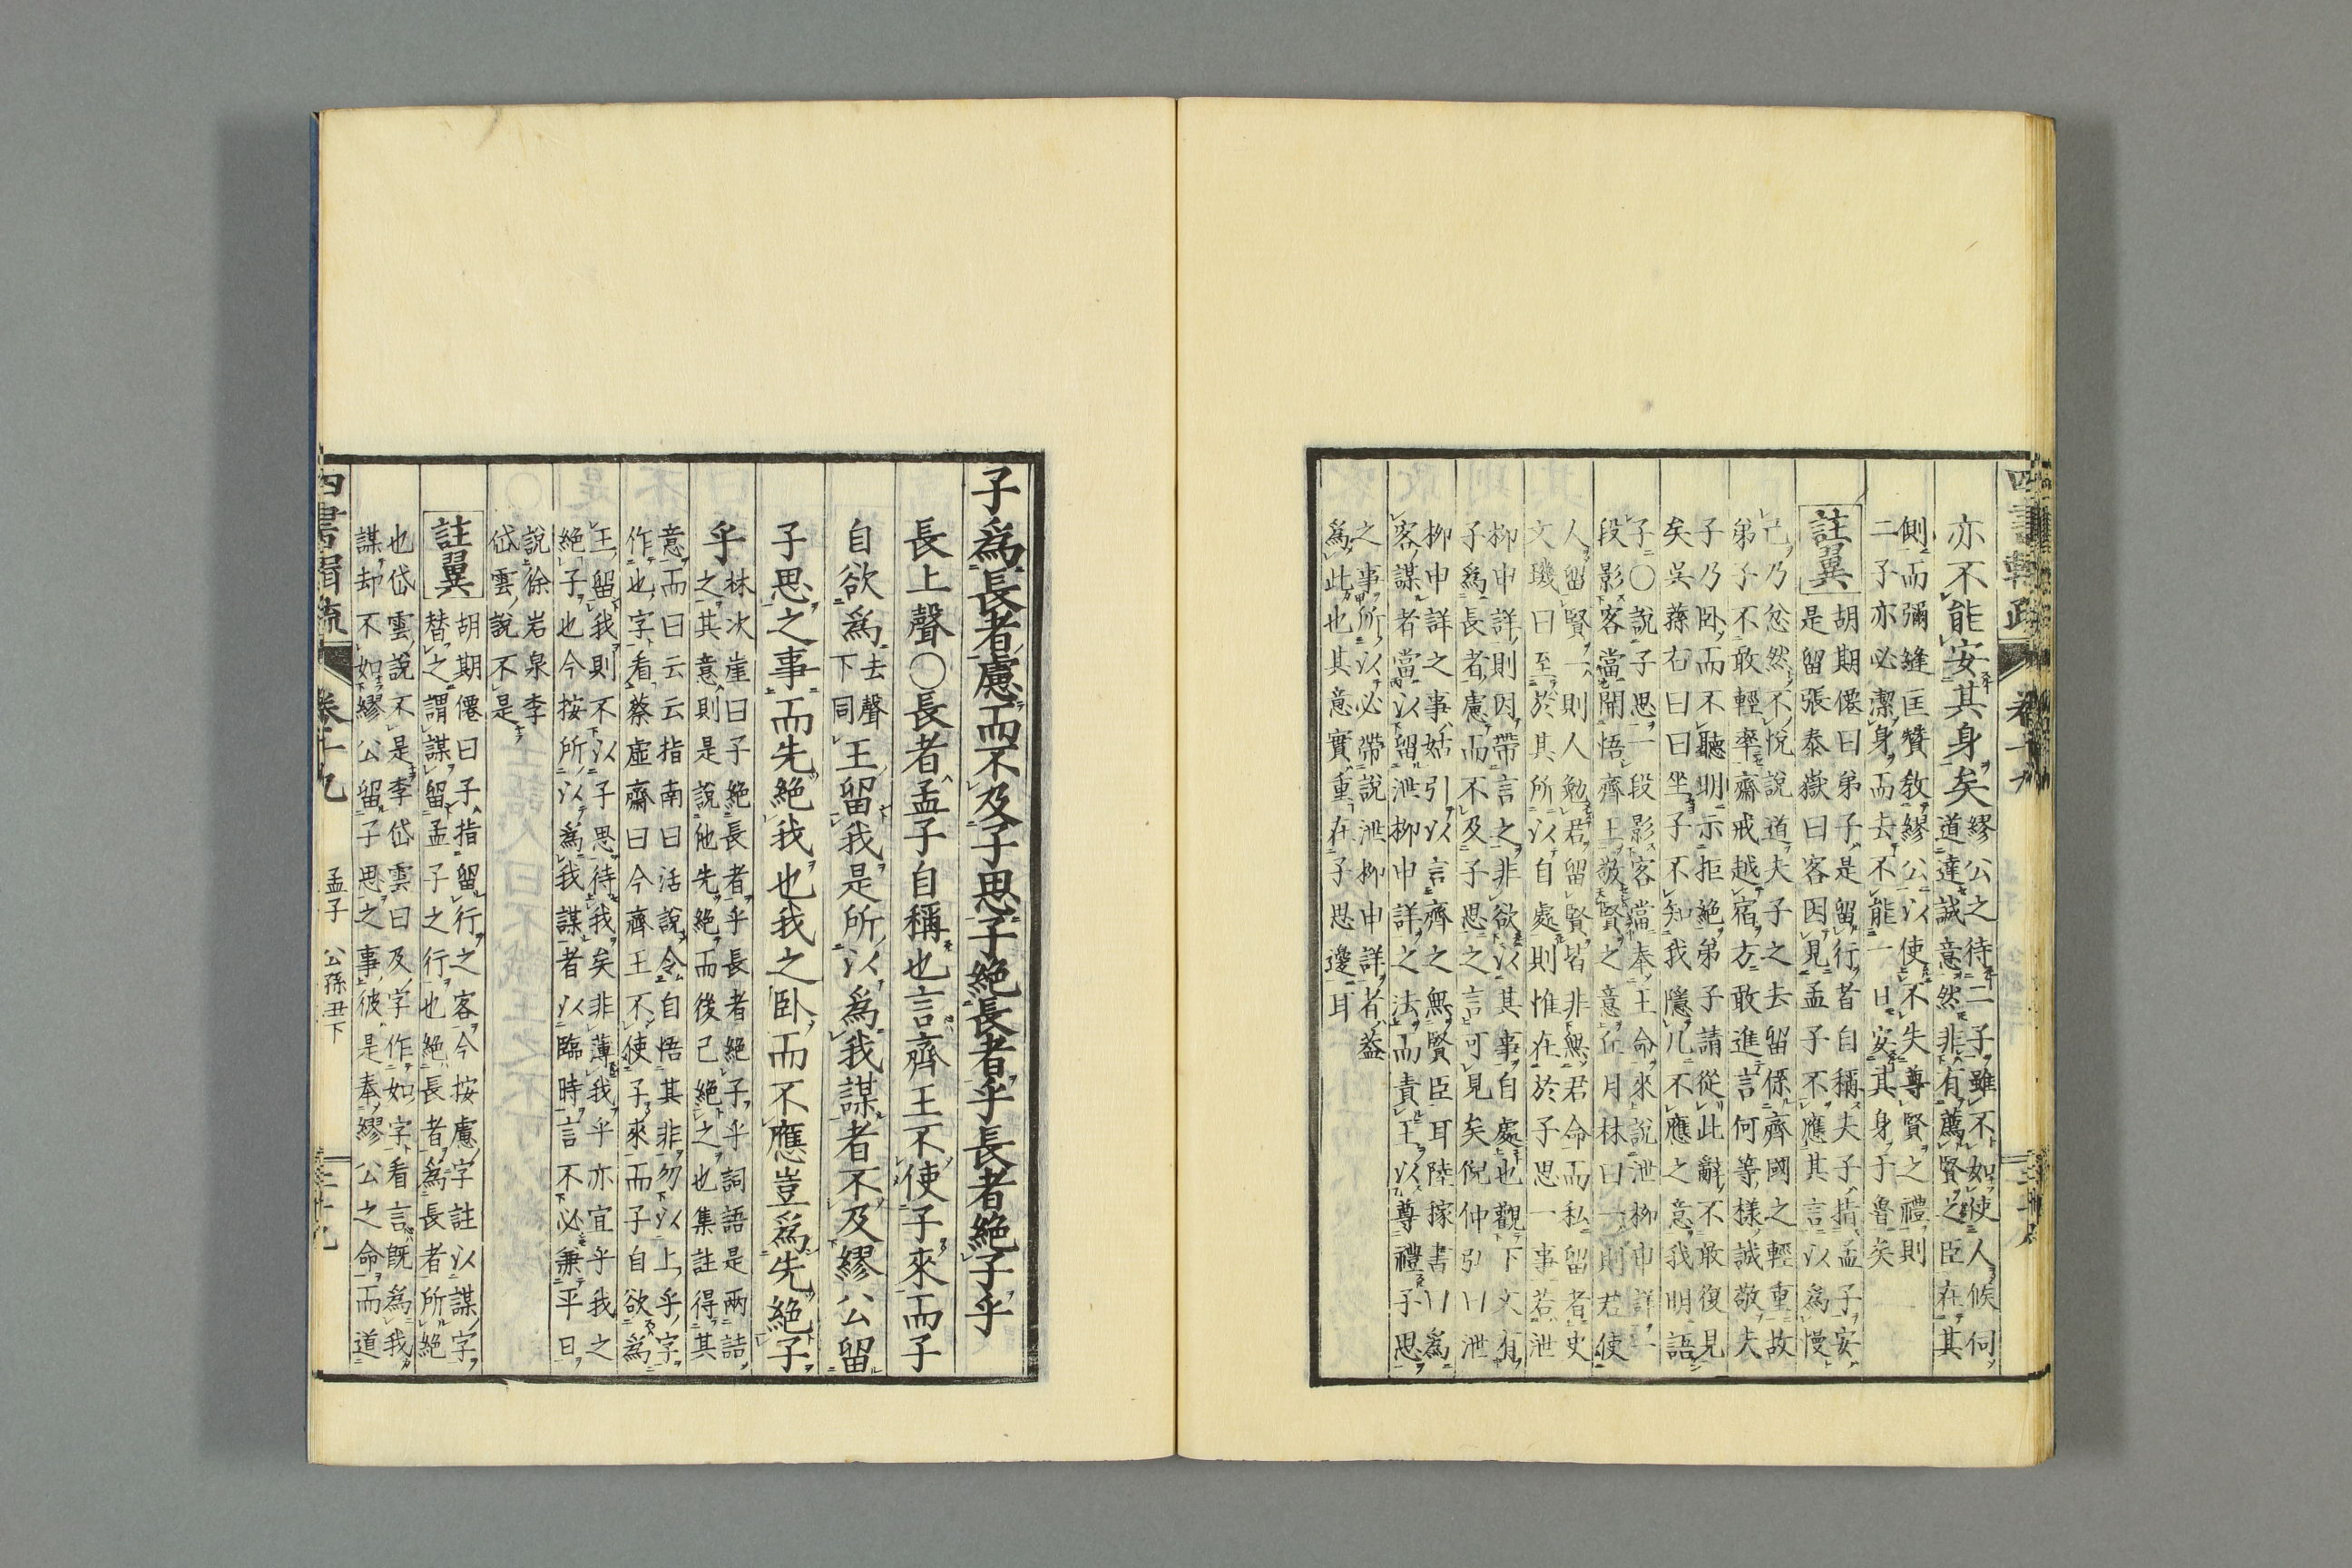 亦不能安其身矣
繆公之待二子雖不如使人候伺
道達誠意然非有薦賢之臣在其
側而彌縫匡贊敎繆公以使不失尊賢之禮則
二子亦必潔身而去不能一日安其身于魯矣
註翼
胡期僊曰弟子是留行者自稱夫子指孟子安
是留張泰嶽曰客因見孟子不應其言以為慢
己乃忿然不悅說道夫子之去留係齊國之輕重故
弟子不敢輕率齋戒越宿方敢進言何等樣誠敬夫
子乃卧而不聽明示拒絕弟子請從此辭不敢復見
矣吳蓀右曰曰坐子不知我隱几不應之意我明語
子〇說子思一段影客當奉王命來說泄柳申詳一
段影客當開悟齊王敬賢之意丘月林曰一則君使
人留賢一則人勉君留賢皆非無君命而私留者史
文璣曰至於其所以自處則惟在於子思一事若泄
柳申詳則因帶言之非欲以其事自處也觀下文有
子爲長者慮而不及子思之言可見矣倪仲弘曰泄
柳申詳之事姑引以言齊之無賢臣耳陸稼書曰爲
客謀者當以留泄柳申詳之法而責王以尊禮子思
之事所以必帶說泄柳申詳者蓋
爲此也其意實重在子思邊耳
子爲長者慮而不及子思子絕長者乎長者絕子乎
長上聲〇長者孟子自稱也言齊王不使子來而子
自欲爲
去聲
下同
王留我是所以爲我謀者不及繆公留
子思之事而先絕我也我之卧而不應豈爲先絕子
乎
林次崖曰子絕長者乎長者絕子乎詞語是兩詰
之其意則是說他先絕而後己絕之也集註得其
意而曰云云指南曰活說令自悟其非勿以上乎字
作也字看蔡虛齋曰今齊王不使子來而子自欲爲
王留我則不以子思待我矣非薄我乎亦宜乎我之
絕子也今按所以爲我謀者以臨時言不必兼平日
說徐岩泉李
岱雲說不是
註翼
胡期僊曰子指留行之客今按慮字註以謀字
替之謂謀留孟子之行也絕長者為長者所絕
也岱雲說不是李岱雲曰及字作如字看言既為我
謀却不如繆公留子思之事彼是奉繆公之命而道
孟子 公孫丑下